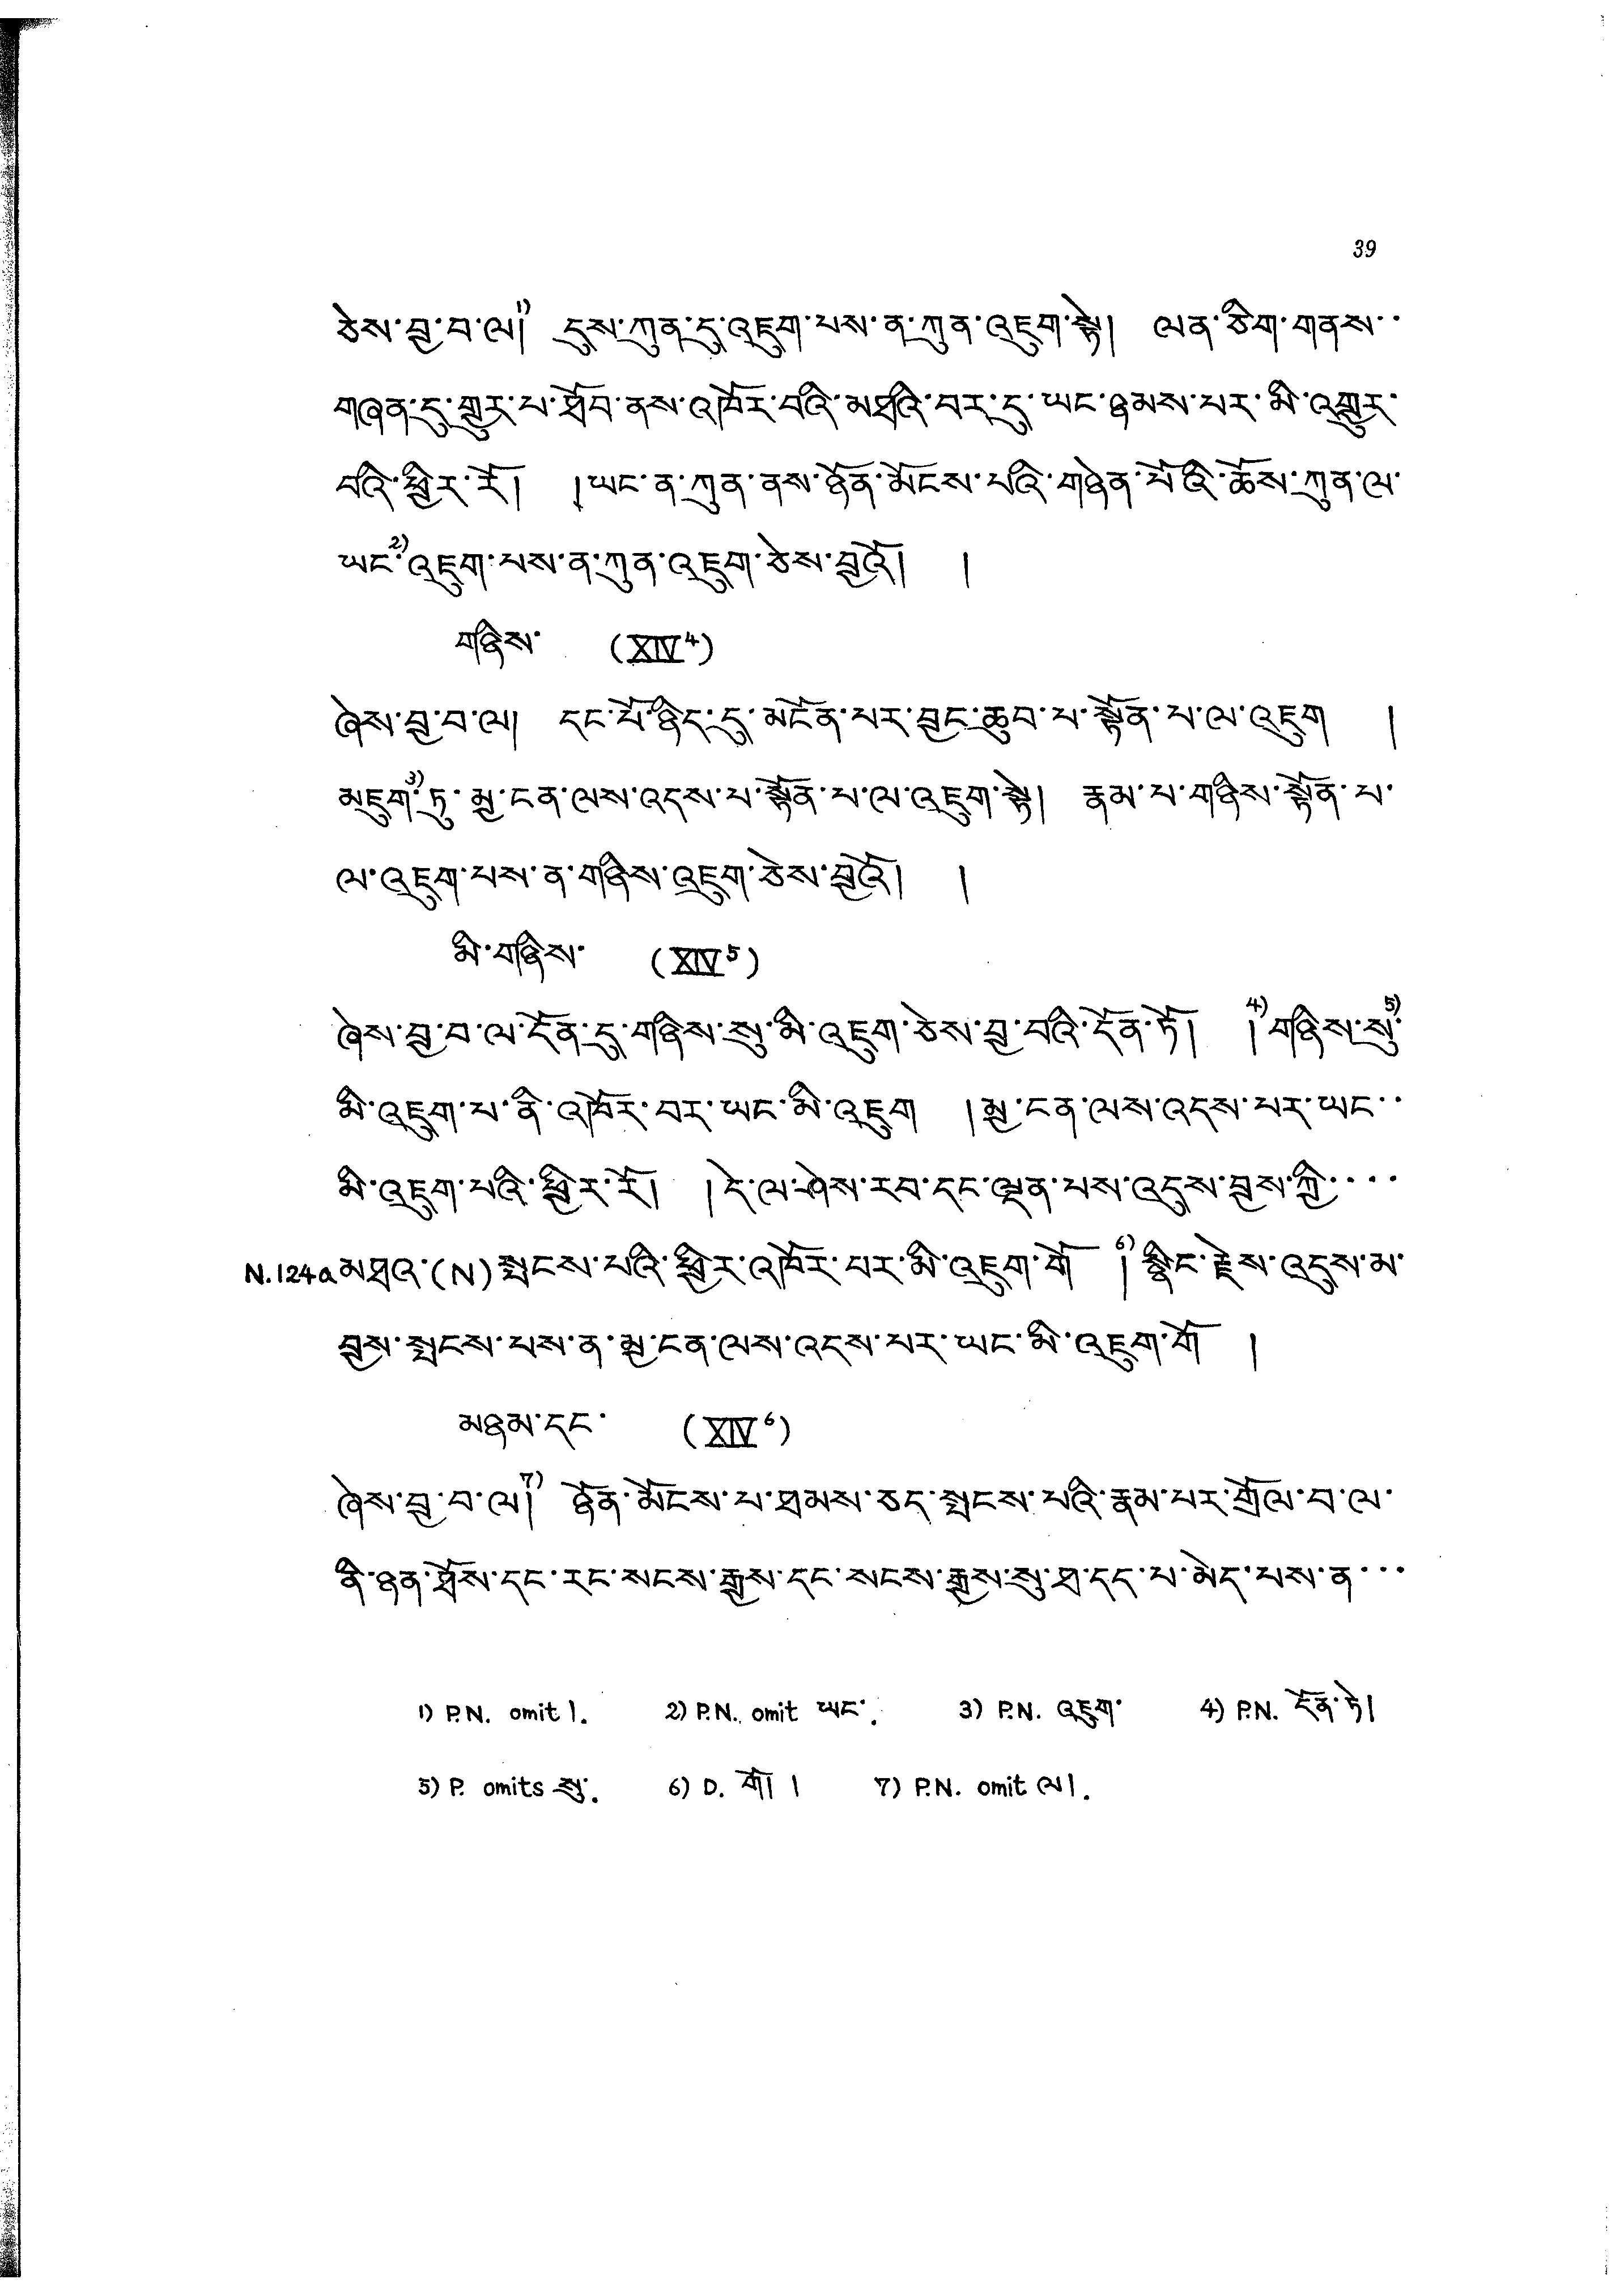 39
ཅེས་བྱ་བ་ལ།1) དུས་ཀུན་དུ་འཇུག་པས་ན་ཀུན་འཇུག་སྟེ། ལན་ཅིག་གནས་་
གཞན་དུ་གྱུར་པ་ཐོབ་ནས་འཁོར་བའི་མཐའི་བར་དུ་ཡང་ཉམས་པར་མི་འགྱུར་
བའི་ཕྱིར་རོ། །ཡང་ན་ཀུན་ནས་ཉོན་མོངས་པའི་གཉེན་པོའི་ཆོས་ཀུན་ལ་
ཡང་2)འཇུག་པས་ན་ཀུན་འཇུག་ཅེས་བྱའོ། །
གཉིས་ (XIV4)
ཞེས་བྱ་བ་ལ། དང་པོ་ཉིད་དུ་མངོན་པར་བྱང་ཆུབ་པ་སྟོན་པ་ལ་འཇུག །
མཇུག་3)ཏུ་མྱ་ངན་ལས་འདས་པ་སྟོན་པ་ལ་འཇུག་སྟེ། རྣམ་པ་གཉིས་སྟོན་པ་
ལ་འཇུག་པས་ན་གཉིས་འཇུག་ཅེས་བྱའོ། །
མི་གཉིས་ (XIV5)
ཞེས་བྱ་བ་ལ་དོན་དུ་གཉིས་སུ་མི་འཇུག་ཅེས་བྱ་བའི་དོན་ཏོ། །4)གཉིས་སུ་5)
མི་འཇུག་པ་ནི་འཁོར་བར་ཡང་མི་འཇུག །མྱ་ངན་ལས་འདས་པར་ཡང་་
མི་འཇུག་པའི་ཕྱིར་རོ། །དེ་ལ་ཤེས་རབ་དང་ལྡན་པས་འདུས་བྱས་ཀྱི་་་་
N.124a མཐའ་(N)སྤངས་པའི་ཕྱིར་འཁོར་བར་མི་འཇུག་གོ །6)སྙིང་རྗེས་འདུས་མ་
བྱས་སྤངས་པས་ན་མྱ་ངན་ལས་འདས་པར་ཡང་མི་འཇུག་གོ །
མཉམ་དང་ (XIV6)
ཞེས་བྱ་བ་ལ།7) ཉོན་མོངས་པ་ཐམས་ཅད་སྤངས་པའི་རྣམ་པར་གྲོལ་བ་ལ་
ནི་ཉན་ཐོས་དང་རང་སངས་རྒྱས་དང་སངས་རྒྱས་སུ་ཐ་དད་པ་མེད་པས་ན་་་
1) P.N. omit །. 2) P.N. omit ཡང་. 3) P.N. འཇུག་ 4) P.N. དོན་ཏེ།
5) P. omits སུ་. 6) D. གོ། ། 7) P.N. omit ལ།.